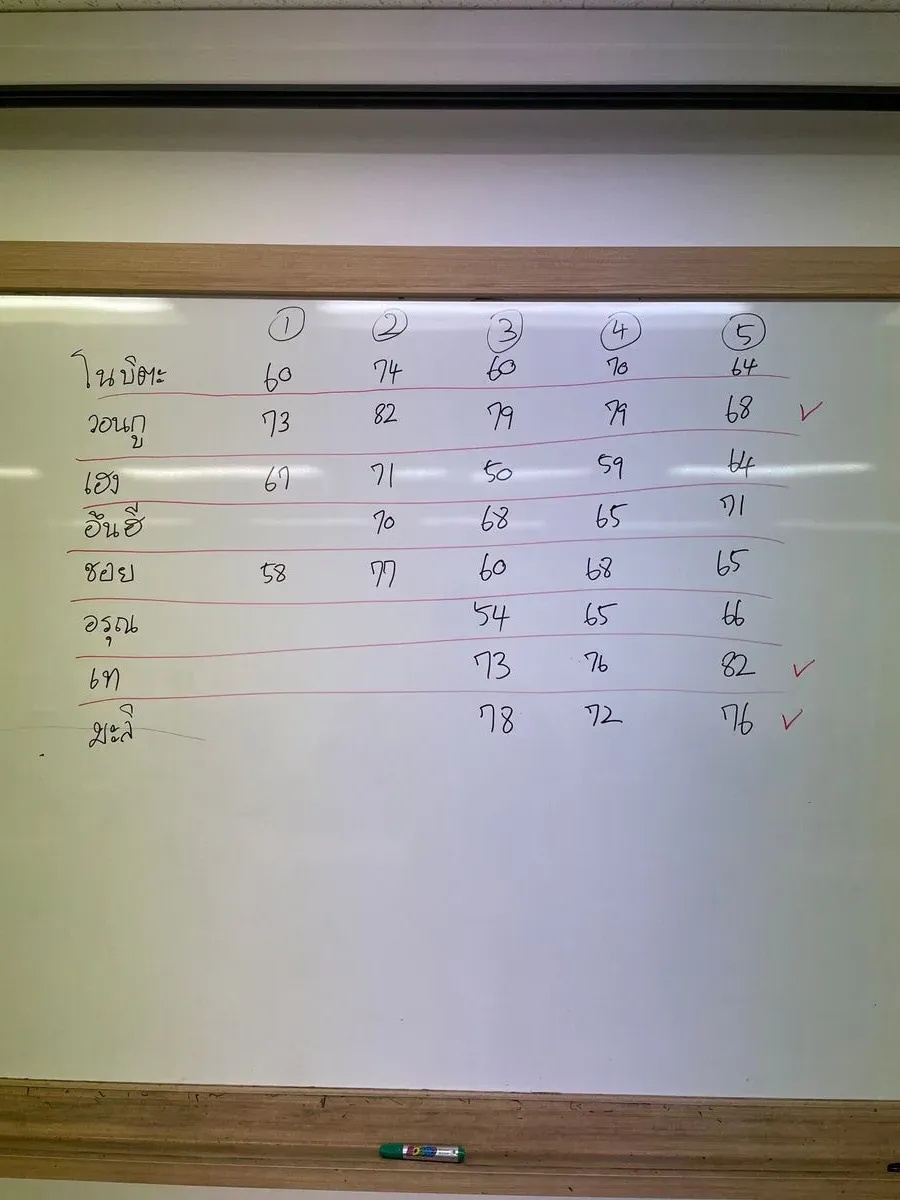 ① ② ③ ④ ⑤
โนบิตะ 60 74 60 70 64
วอนกู 73 82 79 79 68 ✓
เฮง 67 71 50 59 64
อึนฮี 70 68 65 71
ชอย 58 77 60 68 65
อรุณ 54 65 66
เท 73 76 82 ✓
มะลิ 78 72 76 ✓